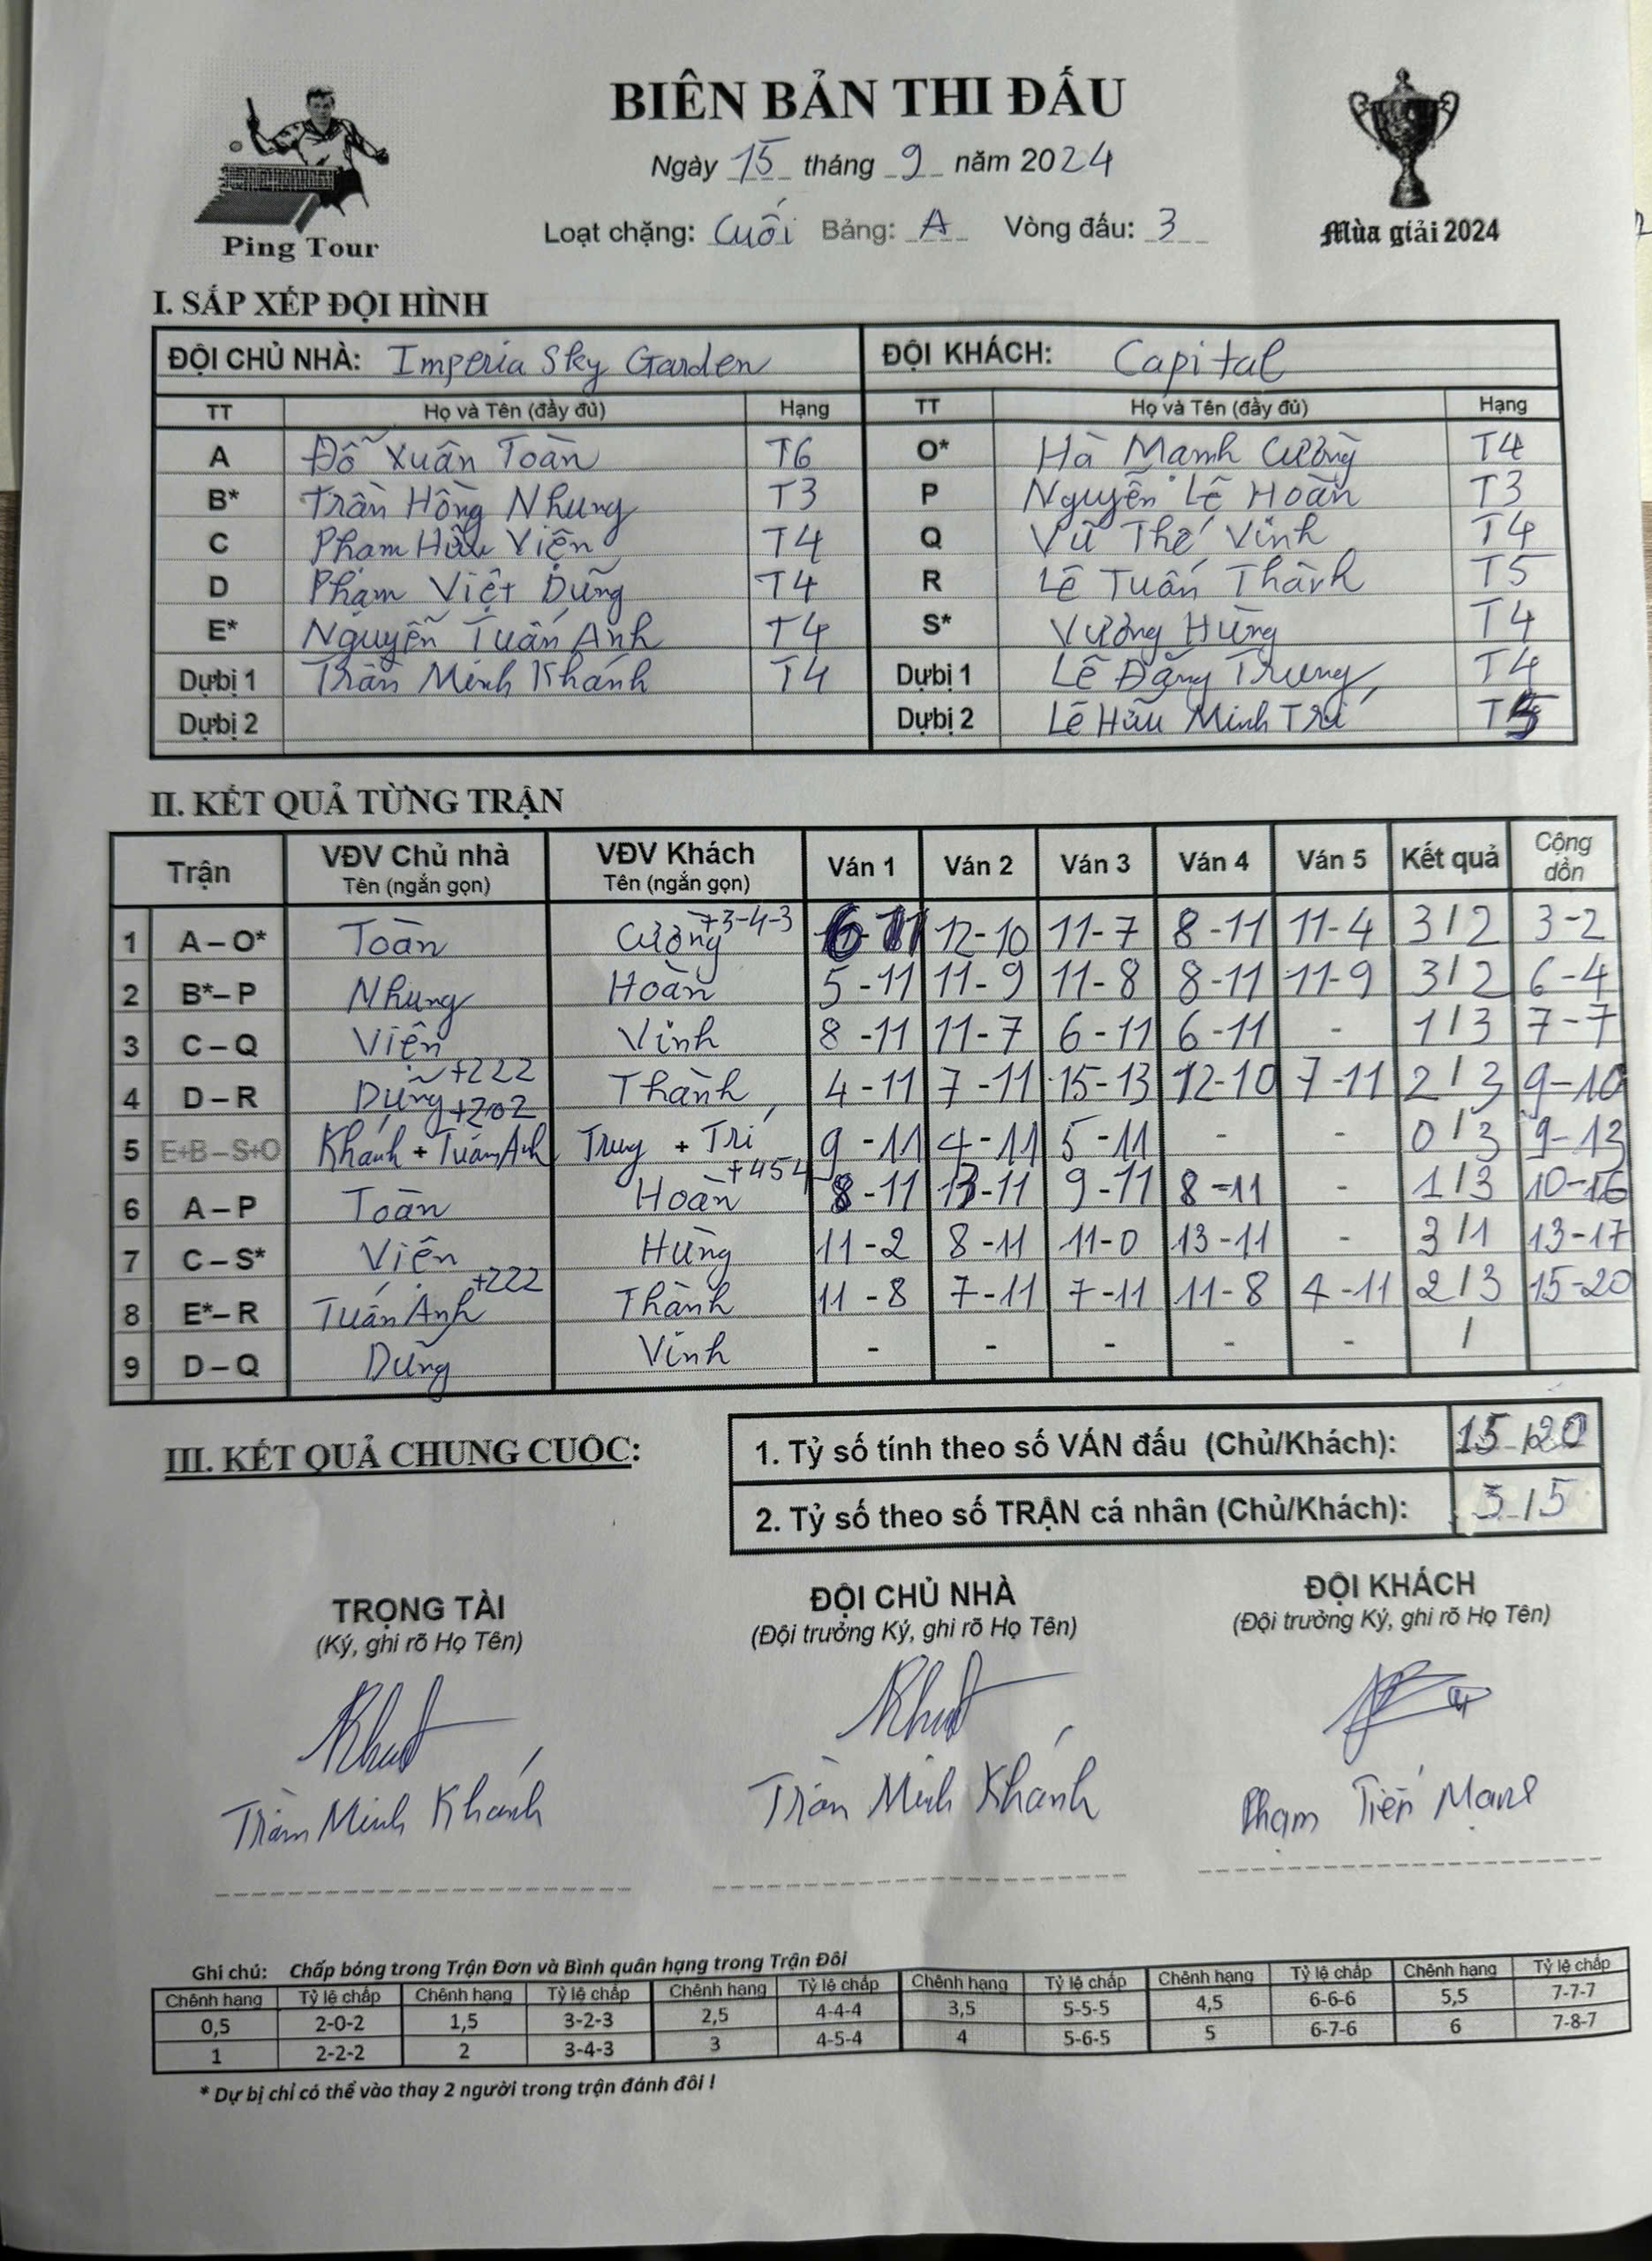 BIÊN BẢN THI ĐẤU
Ngày 15 tháng 9 năm 2024
Loạt chặng: Cuối Bảng: A Vòng đấu: 3
Ping Tour
Mùa giải 2024
I. SẮP XẾP ĐỘI HÌNH
ĐỘI CHỦ NHÀ: Imperia Sky Garden ĐỘI KHÁCH: Capital
TT Họ và Tên (đầy đủ) Hạng TT Họ và Tên (đầy đủ) Hạng
A Đỗ Xuân Toàn T6 O* Hà Mạnh Cường T4
B* Trần Hồng Nhung T3 P Nguyễn Lê Hoàn T3
C Phạm Hữu Viện T4 Q Vũ Thế Vinh T4
D Phạm Việt Dũng T4 R Lê Tuấn Thành T5
E* Nguyễn Tuấn Anh T4 S* Vương Hùng T4
Dự bị 1 Trần Minh Khánh T4 Dự bị 1 Lê Đặng Trung T4
Dự bị 2 Dự bị 2 Lê Hữu Minh Trí T5
II. KẾT QUẢ TỪNG TRẬN
Trận VĐV Chủ nhà Tên (ngắn gọn) VĐV Khách Tên (ngắn gọn) Ván 1 Ván 2 Ván 3 Ván 4 Ván 5 Kết quả Cộng dồn
1 A – O* Toàn Cường +3-4-3 6-11 12-10 11-7 8-11 11-4 3/2 3-2
2 B*– P Nhung Hoàn 5-11 11-9 11-8 8-11 11-9 3/2 6-4
3 C – Q Viện Vinh 8-11 11-7 6-11 6-11 - 1/3 7-7
4 D – R Dũng +222 Thành 4-11 7-11 15-13 12-10 7-11 2/3 9-10
5 E+B – S+O Khánh + Tuấn Anh +202 Trung + Trí 9-11 4-11 5-11 - - 0/3 9-13
6 A – P Toàn Hoàn +454 8-11 13-11 9-11 8-11 - 1/3 10-16
7 C – S* Viện Hùng 11-2 8-11 11-0 13-11 - 3/1 13-17
8 E*– R Tuấn Anh +222 Thành 11-8 7-11 7-11 11-8 4-11 2/3 15-20
9 D – Q Dũng Vinh - - - - - /
III. KẾT QUẢ CHUNG CUỘC:
1. Tỷ số tính theo số VÁN đấu (Chủ/Khách): 15/20
2. Tỷ số theo số TRẬN cá nhân (Chủ/Khách): 3/5
TRỌNG TÀI ĐỘI CHỦ NHÀ ĐỘI KHÁCH
(Ký, ghi rõ Họ Tên) (Đội trưởng Ký, ghi rõ Họ Tên) (Đội trưởng Ký, ghi rõ Họ Tên)
Trần Minh Khánh Trần Minh Khánh Phạm Tiến Mạnh
Ghi chú: Chấp bóng trong Trận Đơn và Bình quân hạng trong Trận Đôi
Chênh hạng Tỷ lệ chấp Chênh hạng Tỷ lệ chấp Chênh hạng Tỷ lệ chấp Chênh hạng Tỷ lệ chấp Chênh hạng Tỷ lệ chấp Chênh hạng Tỷ lệ chấp
0,5 2-0-2 1,5 3-2-3 2,5 4-4-4 3,5 5-5-5 4,5 6-6-6 5,5 7-7-7
1 2-2-2 2 3-4-3 3 4-5-4 4 5-6-5 5 6-7-6 6 7-8-7
* Dự bị chỉ có thể vào thay 2 người trong trận đánh đôi !